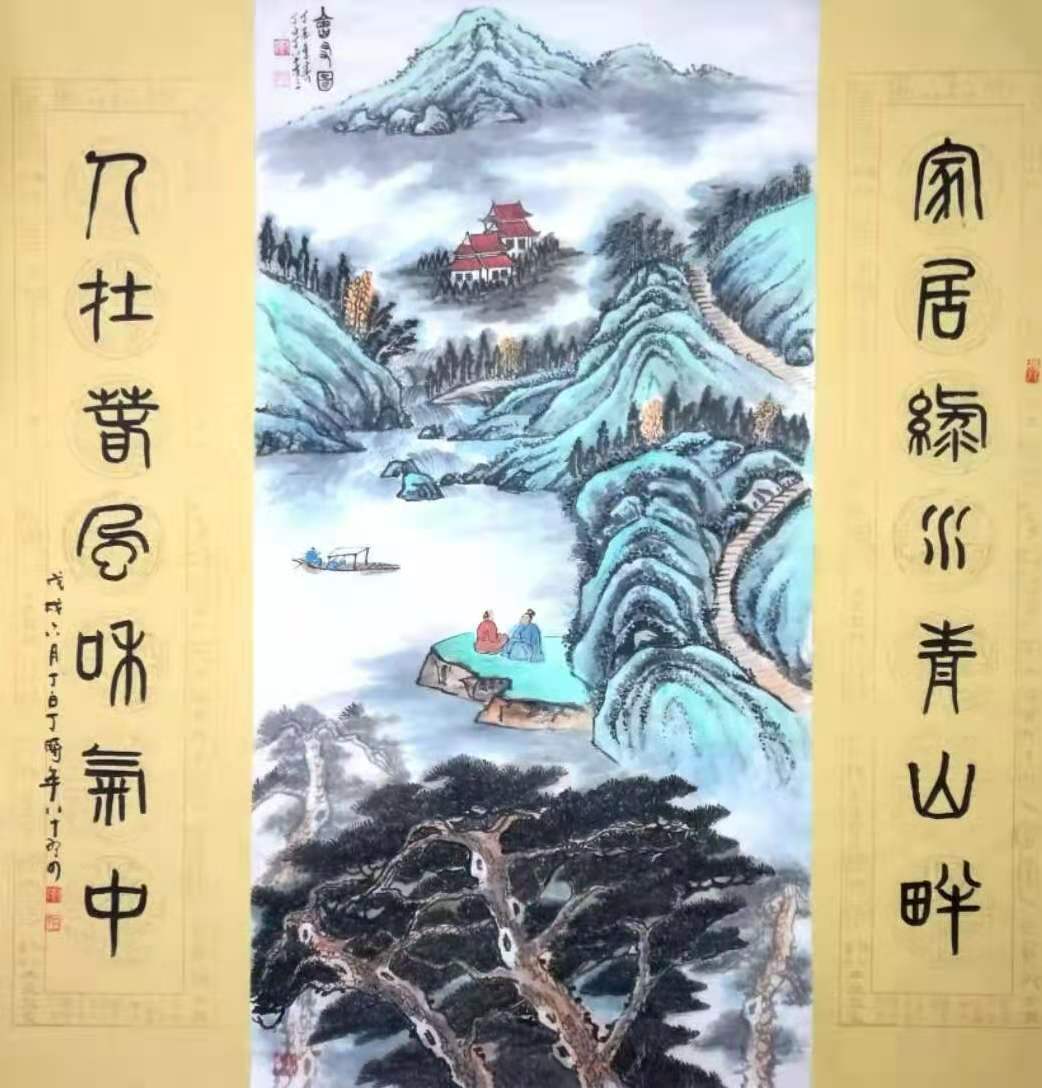 家居綠水青山畔
會友圖
人在春風和氣中
戊戌六月丁白丁年八十